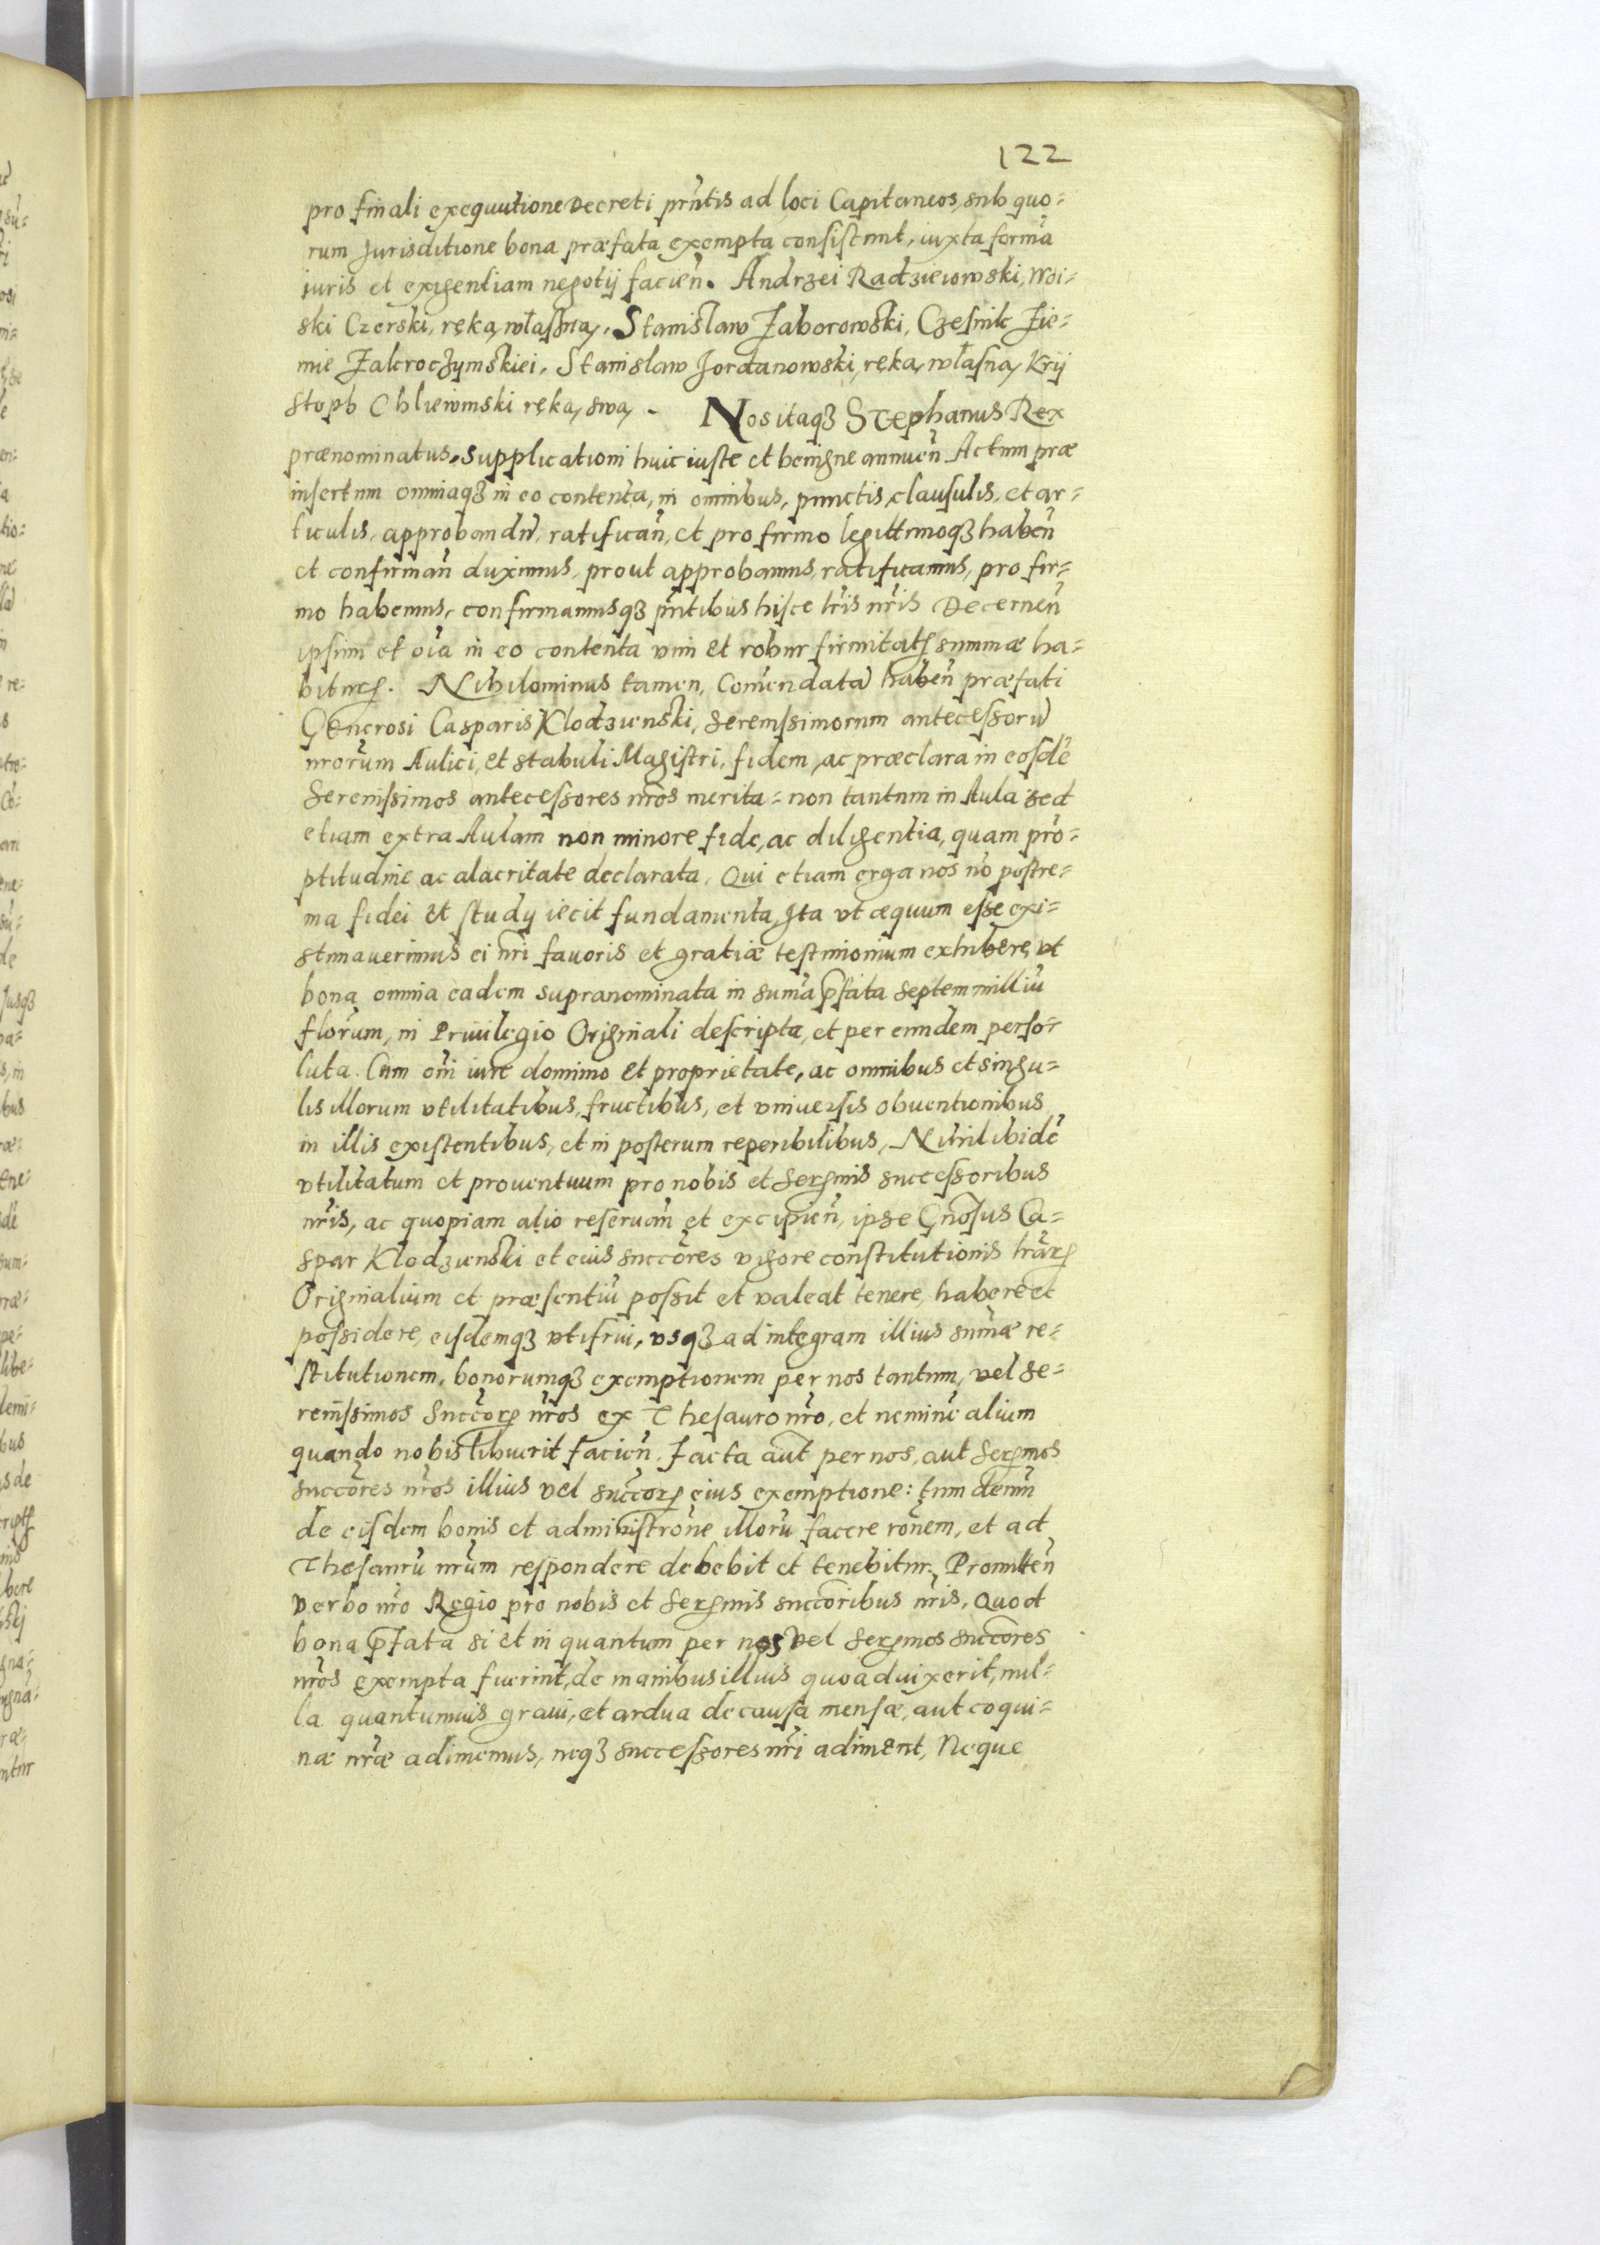 122
pro finali exequutione Decreti prñtis ad loci Capitaneos, sub quo=
rum Jurisditione bona præfata exempta consistunt, iuxta formã
iuris et exigentiam negotij facieñ. Andrzei Radzieiowski, Woi=
ski Czerski, ręką własną. Stanislaw Zaborowski, Czesnik Zie=
mie Zakroczymskiei, Stanislaw Jordanowski, ręką własną, Krij
stoph Chliewinski ręką swą. Nos itaqз Stephanus Rex
prænominatus, supplicationi huic iuste et benigne annueñ Actum præ
insertum omniaqз in eo contenta, in omnibus, punctis, clausulis, et ar=
ticulis, approbandũ, ratificañ, et pro firmo legittimoqз habeñ
et confirmañ duximus, prout approbamus, ratificamus, pro fir=
mo habemus, confirmamusqз prñtibus hisce lris nr̃is Decerneñ
ipsum et oĩa in eo contenta vim et robur firmitatꝭ summæ ha=
biturꝭ. Nihilominus tamen, Com̃endatã habeñ præfati
Generosi Casparis Klodzienski, Serenissimorum antecessorũ
nrõrum Aulici, et stabuli Magistri, fidem, ac præclara in eosdẽ
Serenissimos antecessores nr̃os merita = non tantum in Aula sed
etiam extra Aulam non minore fide, ac diligentia, quam prõ=
ptitudine ac alacritate declarata, Qui etiam erga nos nõ postre=
ma fidei et studij iecit fundamenta, Ita vt æquum esse exi=
stimauerimus ei nr̃i fauoris et gratiæ testimonium exhibere, vt
bona omnia eadem supranominata in sum̃a p̃fata septem milliũ
florum̃, in Priuilegio Originali descripta, et per eundem perso=
luta. Cum om̃i iure dominio et proprietate, ac omnibus et singu=
lis illorum vtilitatibus, fructibus, et vniuersis obuentionibus
in illis existentibus, et in posterum reperibilibus, Nihil ibidẽ
vtilitatum et prouentuum pro nobis et Serꝭmis successoribus
nr̃is, ac quopiam alio reseruañ et excipieñ, ipse Gnõsus Ca=
spar Klodzienski et eius succõres vigore constitutionis lrãrꝭ
Originalium et præsentiũ possit et valeat tenere, habere et
possidere, eisdemqз vtifrui, vsqз ad integram illius sum̃æ re=
stitutionem, bonorumqз exemptionem per nos tantum, vel se=
renissimos Succõrꝭ nr̃os ex Thesauro nr̃o, et neminẽ alium
quando nobis libuerit facieñ. Facta aũt per nos, aut Serꝭmos
succõres nr̃os illius vel succõrꝭ eius exemptione: tum demũ
de eisdem bonis et administrõne illorũ facere rõnem, et ad
Thesaurũ nrũm respondere debebit et tenebitur. Promitteñ
verbo nr̃o Regio pro nobis et Serꝭmis succõribus nr̃is, Quod
bona p̃fata si et in quantum per nos vel Serꝭmos succõres
nr̃os exempta fuerint, de manibus illius quoad uixerit, nul=
la quantumuis graui, et ardua de causa mensæ, aut coqui=
næ nr̃æ adimemus, neqз successores nr̃i adiment, Neque